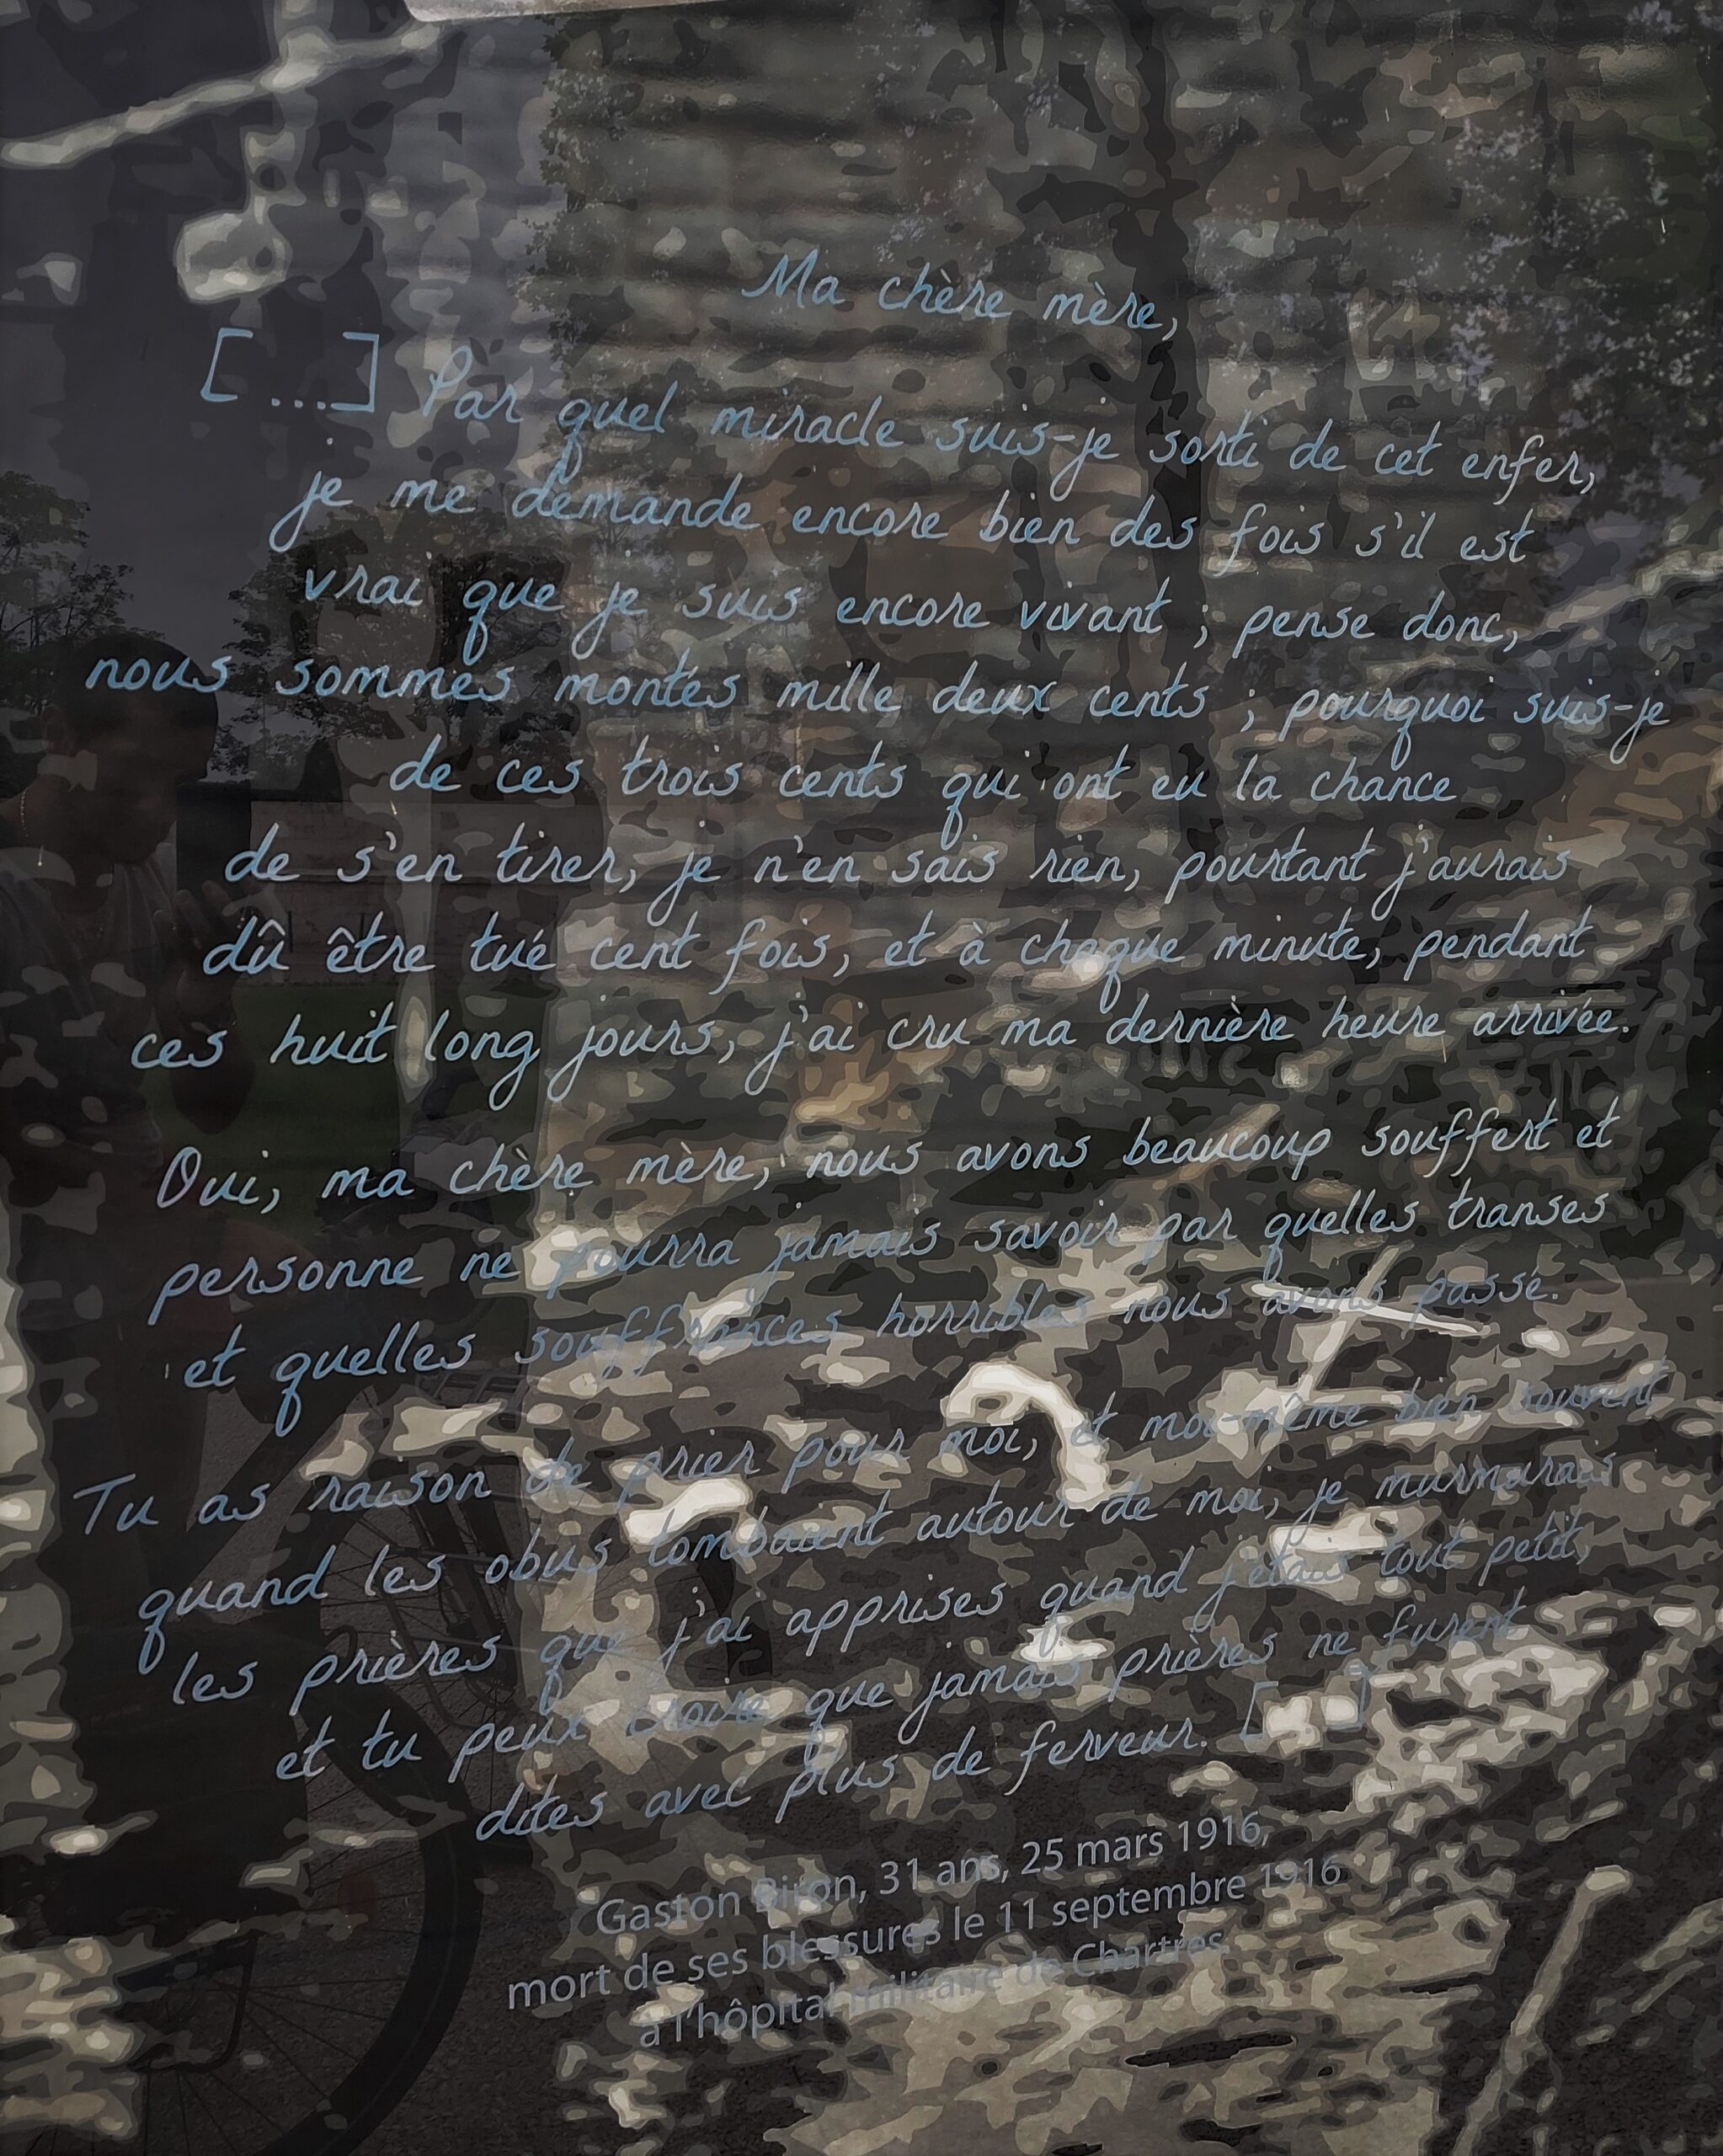 Ma chère mère,
[...] Par quel miracle suis-je sorti de cet enfer,
je me demande encore bien des fois s'il est
vrai que je suis encore vivant ; pense donc,
nous sommes montés mille deux cents ; pourquoi suis-je
de ces trois cents qui ont eu la chance
de s'en tirer, je n'en sais rien, pourtant j'aurais
dû être tué cent fois, et à chaque minute, pendant
ces huit long jours, j'ai cru ma dernière heure arrivée.
Oui, ma chère mère, nous avons beaucoup souffert et
personne ne pourra jamais savoir par quelles transes
et quelles souffrances horribles nous avons passé.
Tu as raison de prier pour moi, et moi-même bien souvent
quand les obus tombaient autour de moi, je murmurais
les prières que j'ai apprises quand j'étais tout petit,
et tu peux croire que jamais prières ne furent
dites avec plus de ferveur. [...]
Gaston Biron, 31 ans, 25 mars 1916,
mort de ses blessures le 11 septembre 1916
à l'hôpital militaire de Chartres.